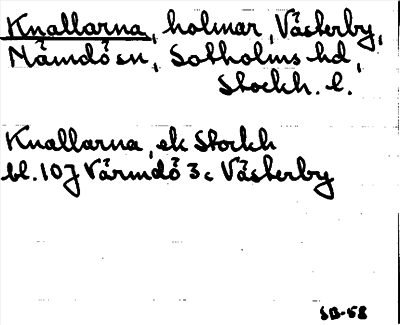 Knallarna, holmar, Västerby,
Nämdö sn, Sotholms hd,
Stockh. l.
Knallarna, ek Stockh
bl. 107 Värmdö 3c Västerby
SB-58